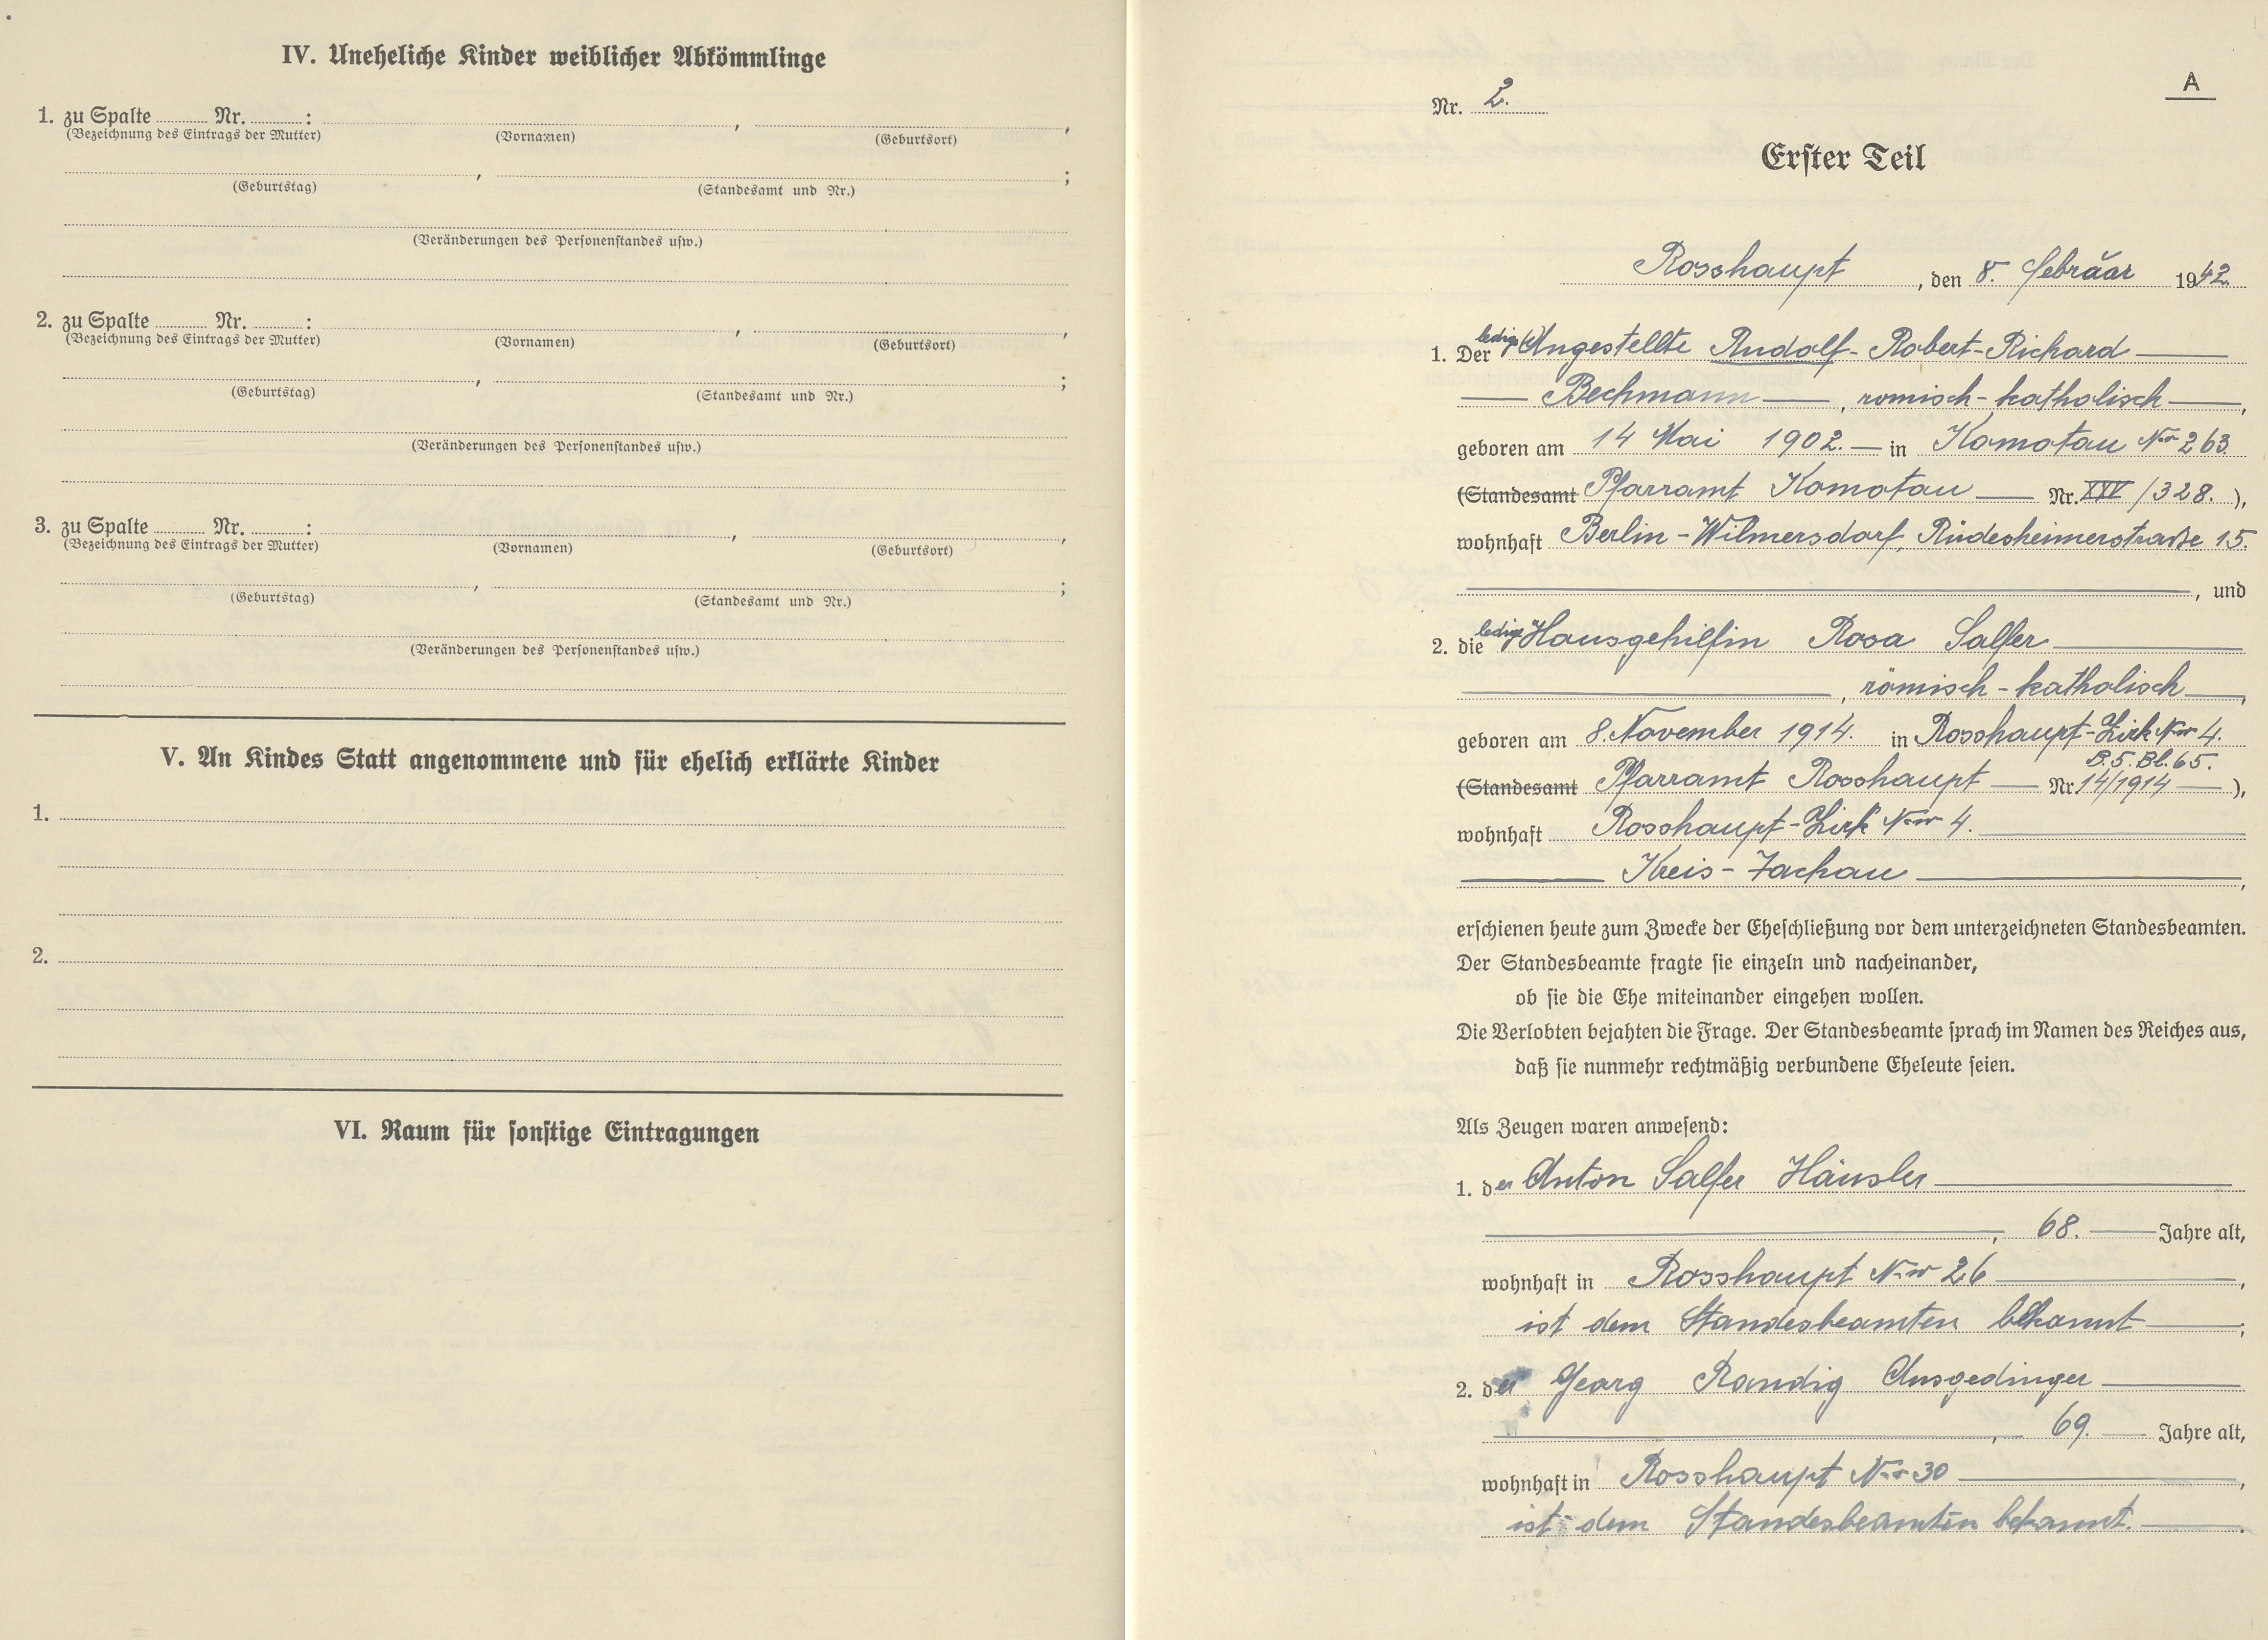 IV. Uneheliche Kinder weiblicher Abkömmlinge
1. zu Spalte ........ Nr. ........ :
(Bezeichnung des Eintrags der Mutter) (Vornamen) , (Geburtsort) ,
(Geburtstag) , (Standesamt und Nr.) ;
(Veränderungen des Personenstandes usw.)
2. zu Spalte ........ Nr. ........ :
(Bezeichnung des Eintrags der Mutter) (Vornamen) , (Geburtsort) ,
(Geburtstag) , (Standesamt und Nr.) ;
(Veränderungen des Personenstandes usw.)
3. zu Spalte ........ Nr. ........ :
(Bezeichnung des Eintrags der Mutter) (Vornamen) , (Geburtsort) ,
(Geburtstag) , (Standesamt und Nr.) ;
(Veränderungen des Personenstandes usw.)
V. An Kindes Statt angenommene und für ehelich erklärte Kinder
1.
2.
VI. Raum für sonstige Eintragungen
A
Nr. 2.
Erster Teil
Rosshaupt , den 8. Februar 1942.
1. Der ledige Angestellte Rudolf-Robert-Richard
Bechmann , römisch-katholisch ,
geboren am 14 Mai 1902. in Komotau Nr 263.
(Standesamt Pfarramt Komotau Nr. XXV/328. ),
wohnhaft Berlin-Wilmersdorf, Rüdesheimerstraße 15.
, und
2. die ledige Hausgehilfin Rosa Salfer
, römisch-katholisch ,
geboren am 8. November 1914. in Rosshaupt-Zirk Nr 4.
B. 5. Bl. 65.
(Standesamt Pfarramt Rosshaupt Nr 14/1914 ),
wohnhaft Rosshaupt-Zirk Nr 4.
Kreis-Tachau ,
erschienen heute zum Zwecke der Eheschließung vor dem unterzeichneten Standesbeamten.
Der Standesbeamte fragte sie einzeln und nacheinander,
ob sie die Ehe miteinander eingehen wollen.
Die Verlobten bejahten die Frage. Der Standesbeamte sprach im Namen des Reiches aus,
daß sie nunmehr rechtmäßig verbundene Eheleute seien.
Als Zeugen waren anwesend:
1. der Anton Salfer Häusler
, 68. Jahre alt,
wohnhaft in Rosshaupt Nr 26 ,
ist dem Standesbeamten bekannt ;
2. der Georg Randig Ausgedinger
, 69. Jahre alt,
wohnhaft in Rosshaupt Nr 30 ,
ist dem Standesbeamten bekannt. .